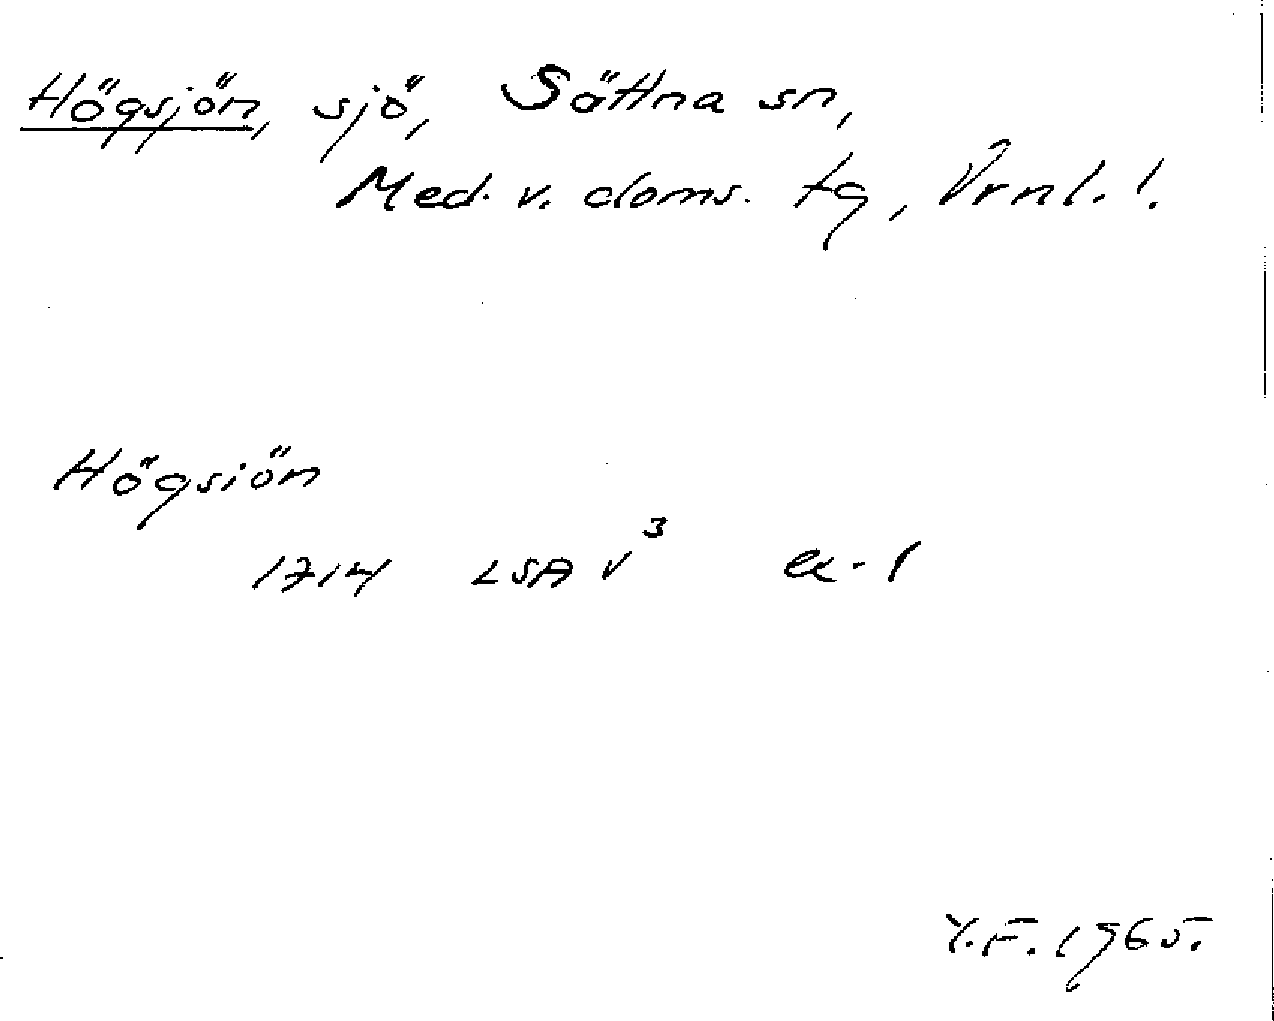 Högsjön, sjö, Sättna sn,
Med. v. doms. tg, Vrnl. !.
Högsiön
1714 LSA V³ a-1
Y.F. 1965.